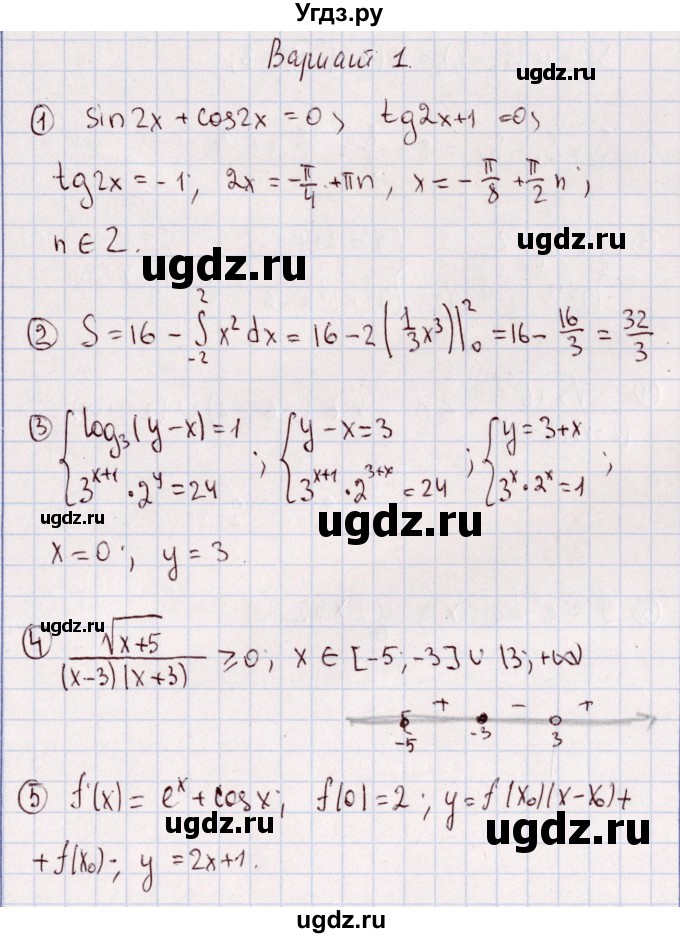 Угдз.ру
Вариант 1.
ugdz.ru
① sin2x + cos2x = 0; tg2x+1 = 0;
tg2x = -1; 2x = -π/4 + πn; x = -π/8 + π/2 n;
n ∈ Z.
ugdz.ru
ugdz.ru
② S = 16 - ∫₋₂² x² dx = 16 - 2(1/3 x³)|₀² = 16 - 16/3 = 32/3
ugdz.ru
③ { log₃(y-x) = 1 ; { y-x = 3 ; { y = 3+x ;
3ˣ⁺¹ · 2ʸ = 24 3ˣ⁺¹ · 2³⁺ˣ = 24 3ˣ · 2ˣ = 1
ugdz.ru
ugdz.ru
x = 0; y = 3
ugdz.ru
④ √(x+5) / (x-3)(x+3) ≥ 0; x ∈ [-5; -3] ∪ (3; +∞)
+ - +
-5 -3 3
ugdz.ru
⑤ f'(x) = eˣ + cosx; f(0) = 2; y = f(x₀)(x-x₀) +
ugdz.ru
ugdz.ru
+ f(x₀); y = 2x+1.
ugdz.ru